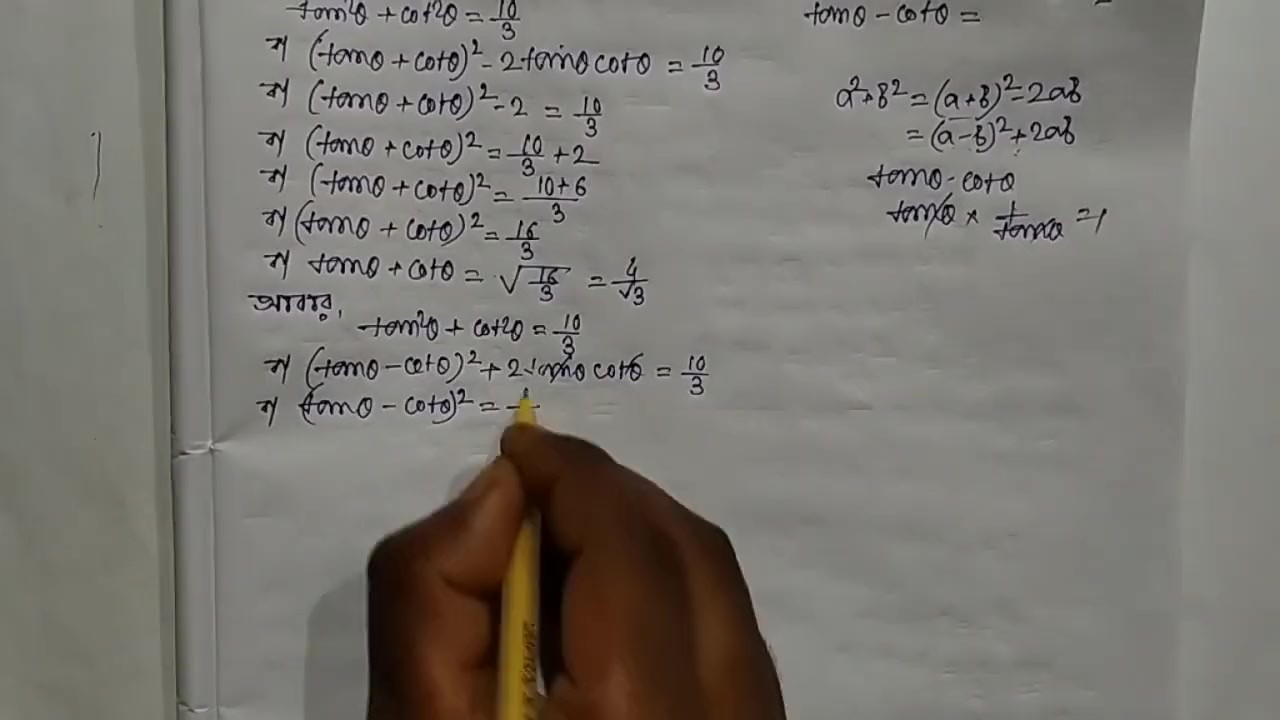 tan²θ + cot²θ = 10/3
বা (tanθ + cotθ)² - 2tanθcotθ = 10/3
বা (tanθ + cotθ)² - 2 = 10/3
বা (tanθ + cotθ)² = 10/3 + 2
বা (tanθ + cotθ)² = 10+6/3
বা (tanθ + cotθ)² = 16/3
বা tanθ + cotθ = √16/3 = 4/√3
আবার,
tan²θ + cot²θ = 10/3
বা (tanθ - cotθ)² + 2tanθcotθ = 10/3
বা (tanθ - cotθ)² =
tanθ - cotθ =
a²+b² = (a+b)²-2ab
= (a-b)²+2ab
tanθ·cotθ
tanθ × 1/tanθ = 1